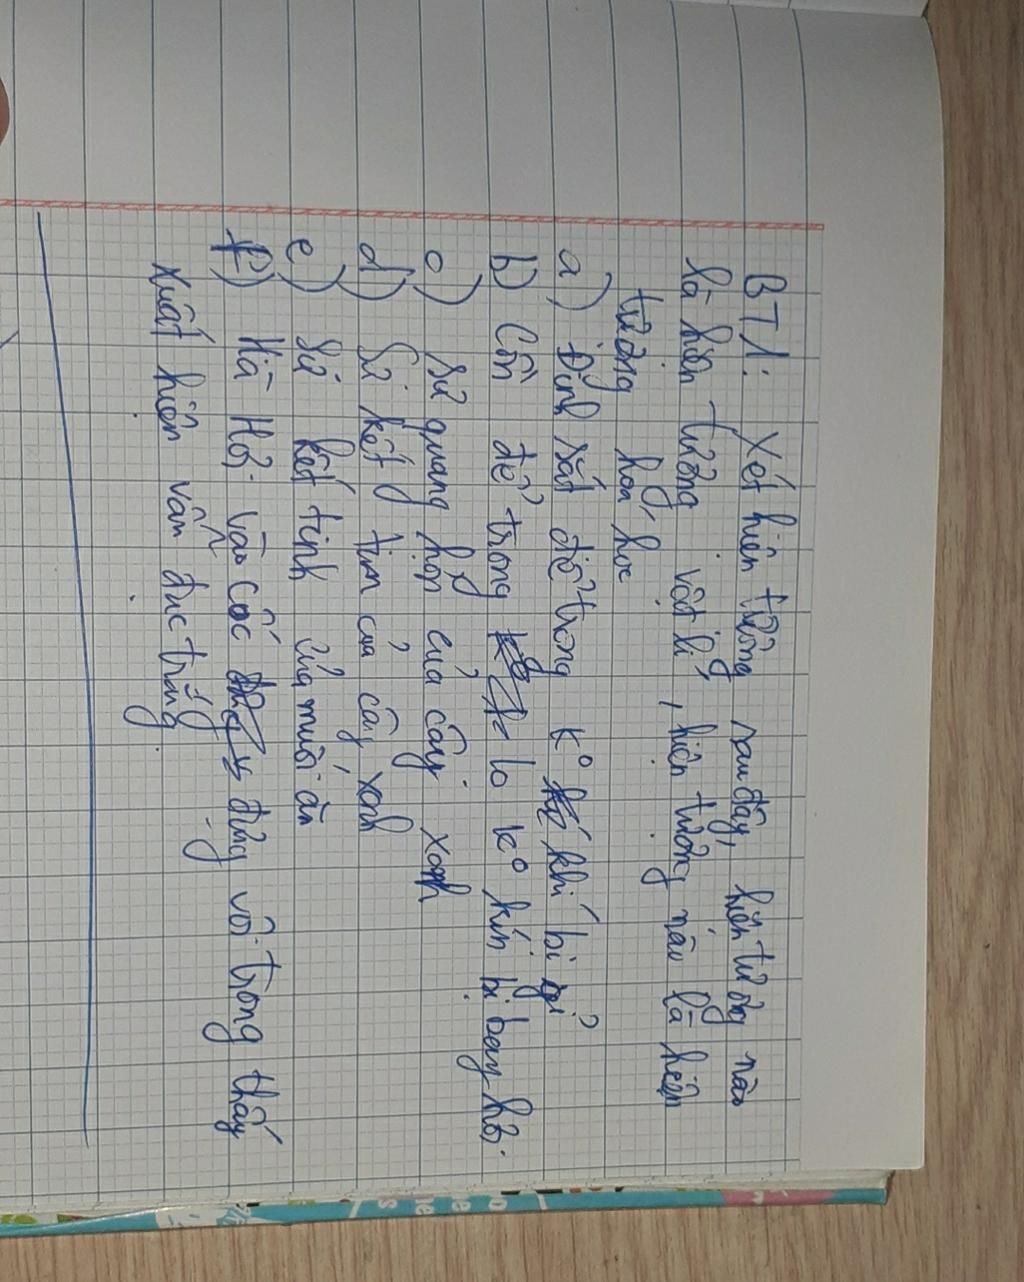 BT1: Xét hiện tượng sau đây, hiện tượng nào
là hiện tượng vật lí, hiện tượng nào là hiện
tượng hoá học
a) Đinh sắt để trong k° khí bị gỉ
b) Cồn để trong lọ k° kín bị bay hơi.
c) Sự quang hợp của cây xanh
d) Sự kết tim của cây xanh
e) Sự kết tinh của muối ăn
f) Hà Hơi vào cốc đựng vôi trong thấy
xuất hiện vẩn đục trắng.